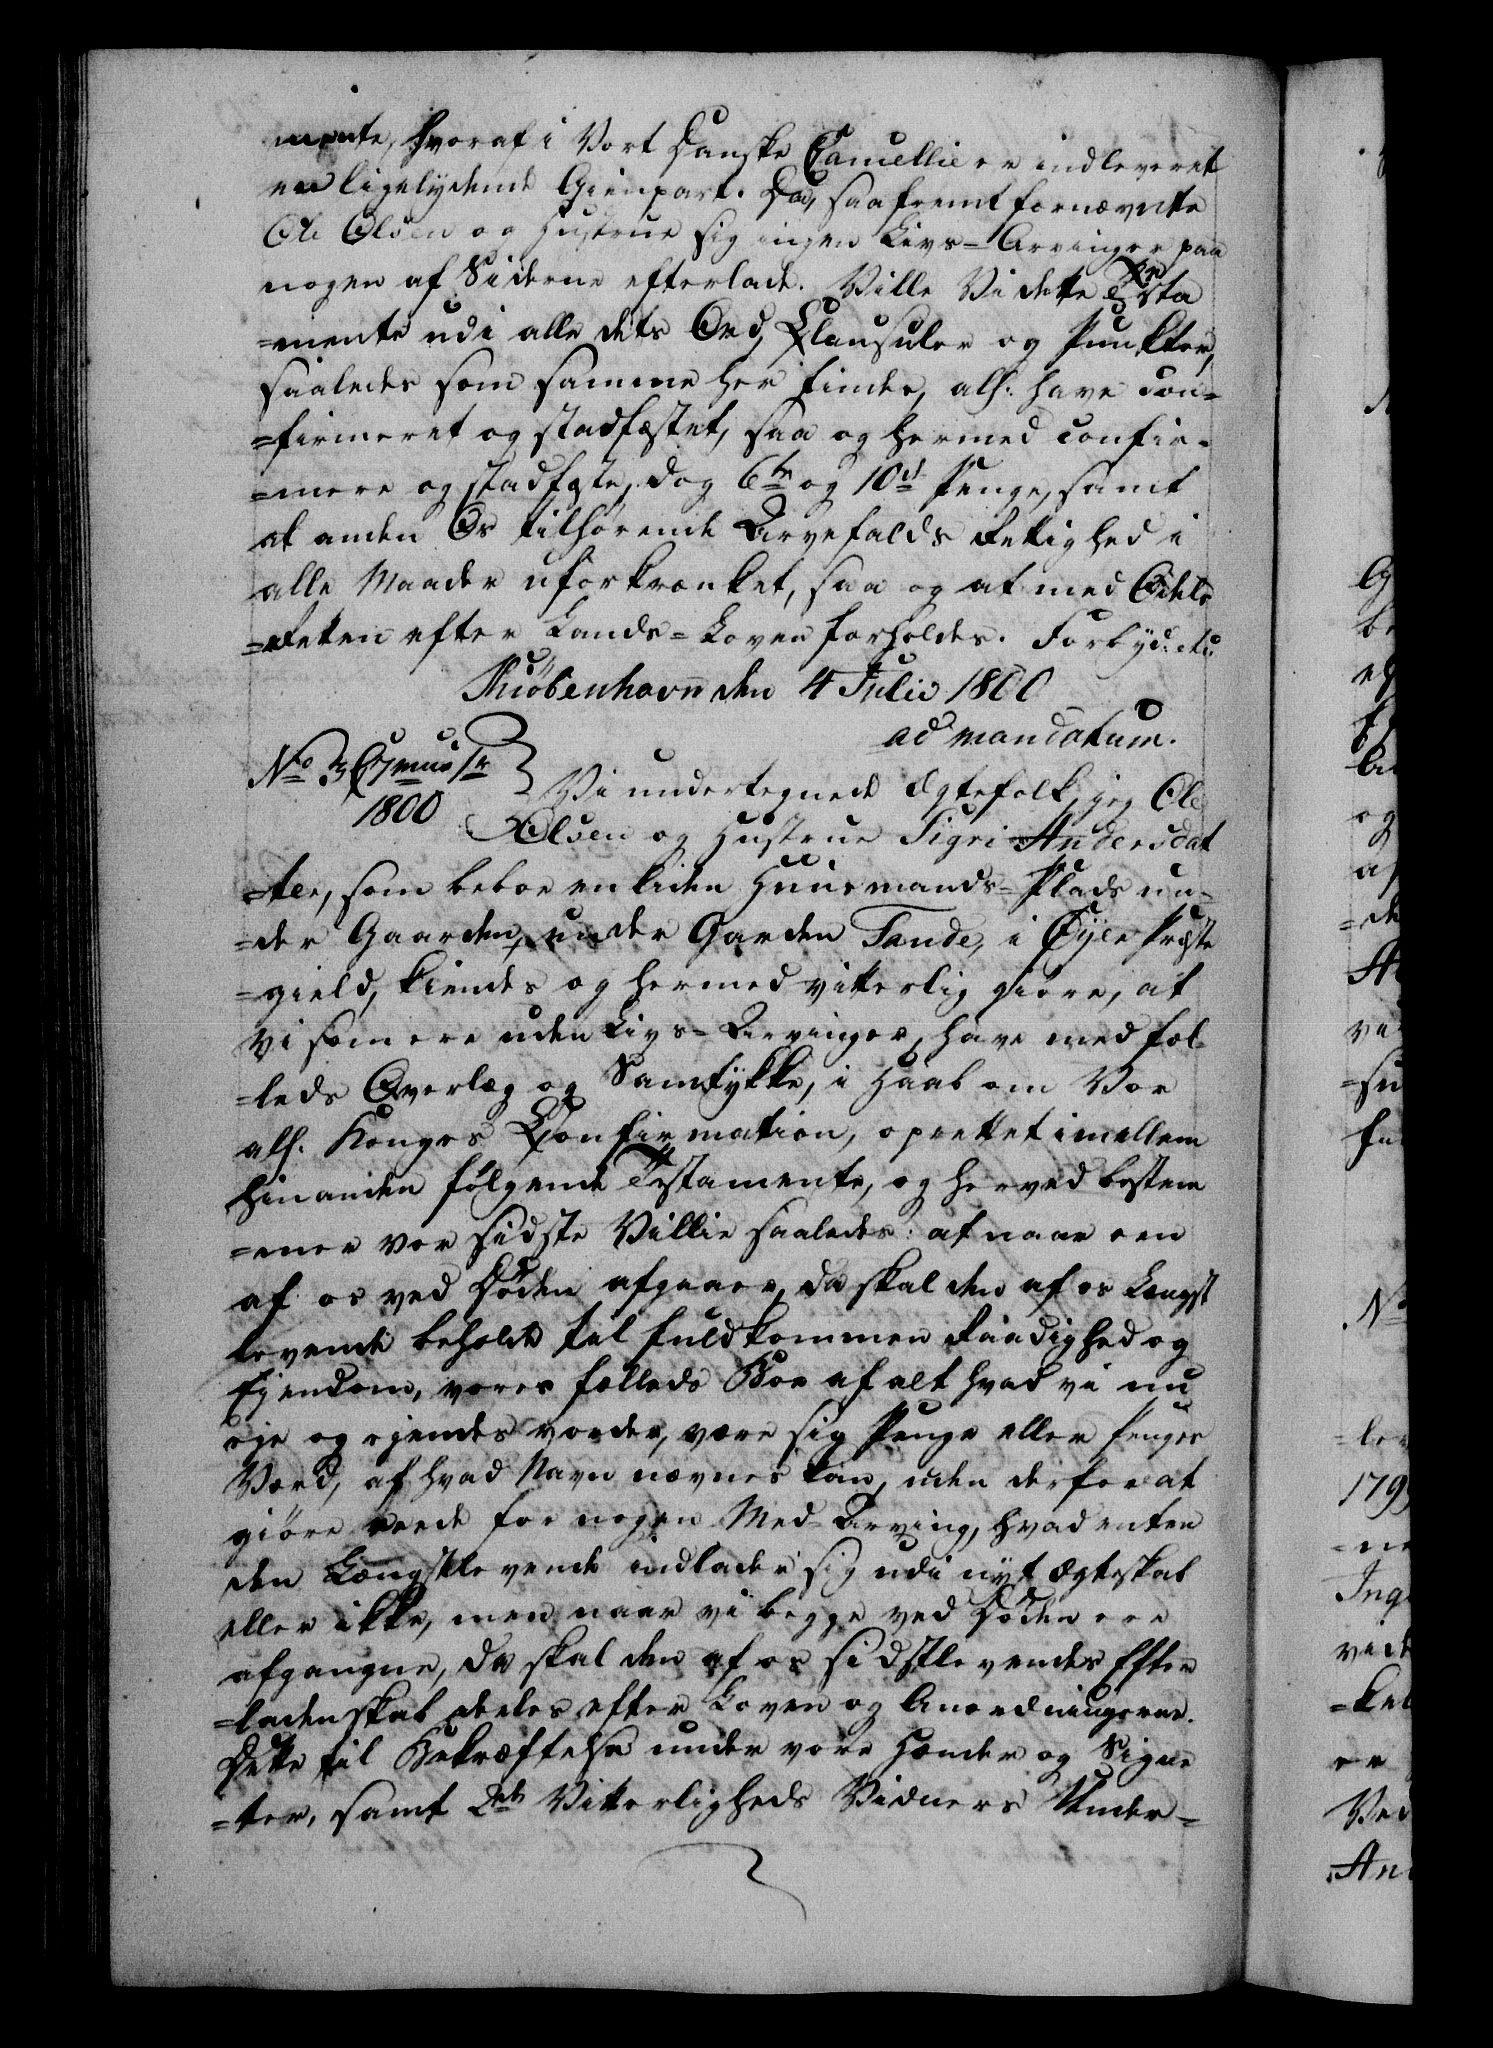 mente, hvoraf i Vort Danske Cancellie er indleveret
en ligelydende Gienpart. Da, saafremt fornævnte
Ole Olsen og Hustrue sig ingen Livs-Arvinger paa
nogen af Siderne efterlade. Ville Vi dette Testa
=mente udi alle dets Ord, Clausuler og Puncter,
saaledes som samme her findes, alh: have con=
=firmeret og stadfæstet, saa og hermed confir=
=mere og stadfæste, dog 6te og 10de Penge, samt
al anden Os tilhørende Arvefalds Rettighed i
alle Maader uforkrænket, saa og at med Odels
=Retten efter Lands-Loven forholdes. Forbyd: etc.
Kiøbenhavn den 4 Julii 1800
ad mandatum.
No 1800
Vi undertegnede Ægtefolk, jeg Ole
Olsen og Hustrue Sigri Andersdat
=ter, som beboe en liden Huusmands-Plads un=
=der Gaarden, under Garden Tande, i Øyer Præste
=gield, kiendes og hermed vitterlig giøre, at
Vi som ere uden Livs-Arvinger, have med fæl=
=leds Overlæg og Samtykke, i Haab om Vor
alh. Konges Confirmation, oprettet imellem
hinanden følgende Testamente, og herved bestem
=mer vor sidste Villie saaledes: at naar een
af os ved Døden afgaaer, da skal den af os Længst
levende beholde til fuldkommen Raadighed og
Ejendom, vores fælleds Boe af alt hvad vi nu
eje og ejendes vorder, være sig Penge eller Penges
Værd, af hvad Navn nævnes kan, uden derfor at
giøre reede for nogen Med-Arving, hvad enten
den Længstlevende indlader sig udi nyt Ægteskab
eller ikke, men naar vi begge ved Døden ere
afgangne, da skal den af os sidstlevendes Efter
=ladenskab deeles efter Loven og Anordningerne.
Dette til Bekræftelse under vore Hænder og Signe
=ter, samt Vitterligheds Vidners Under=